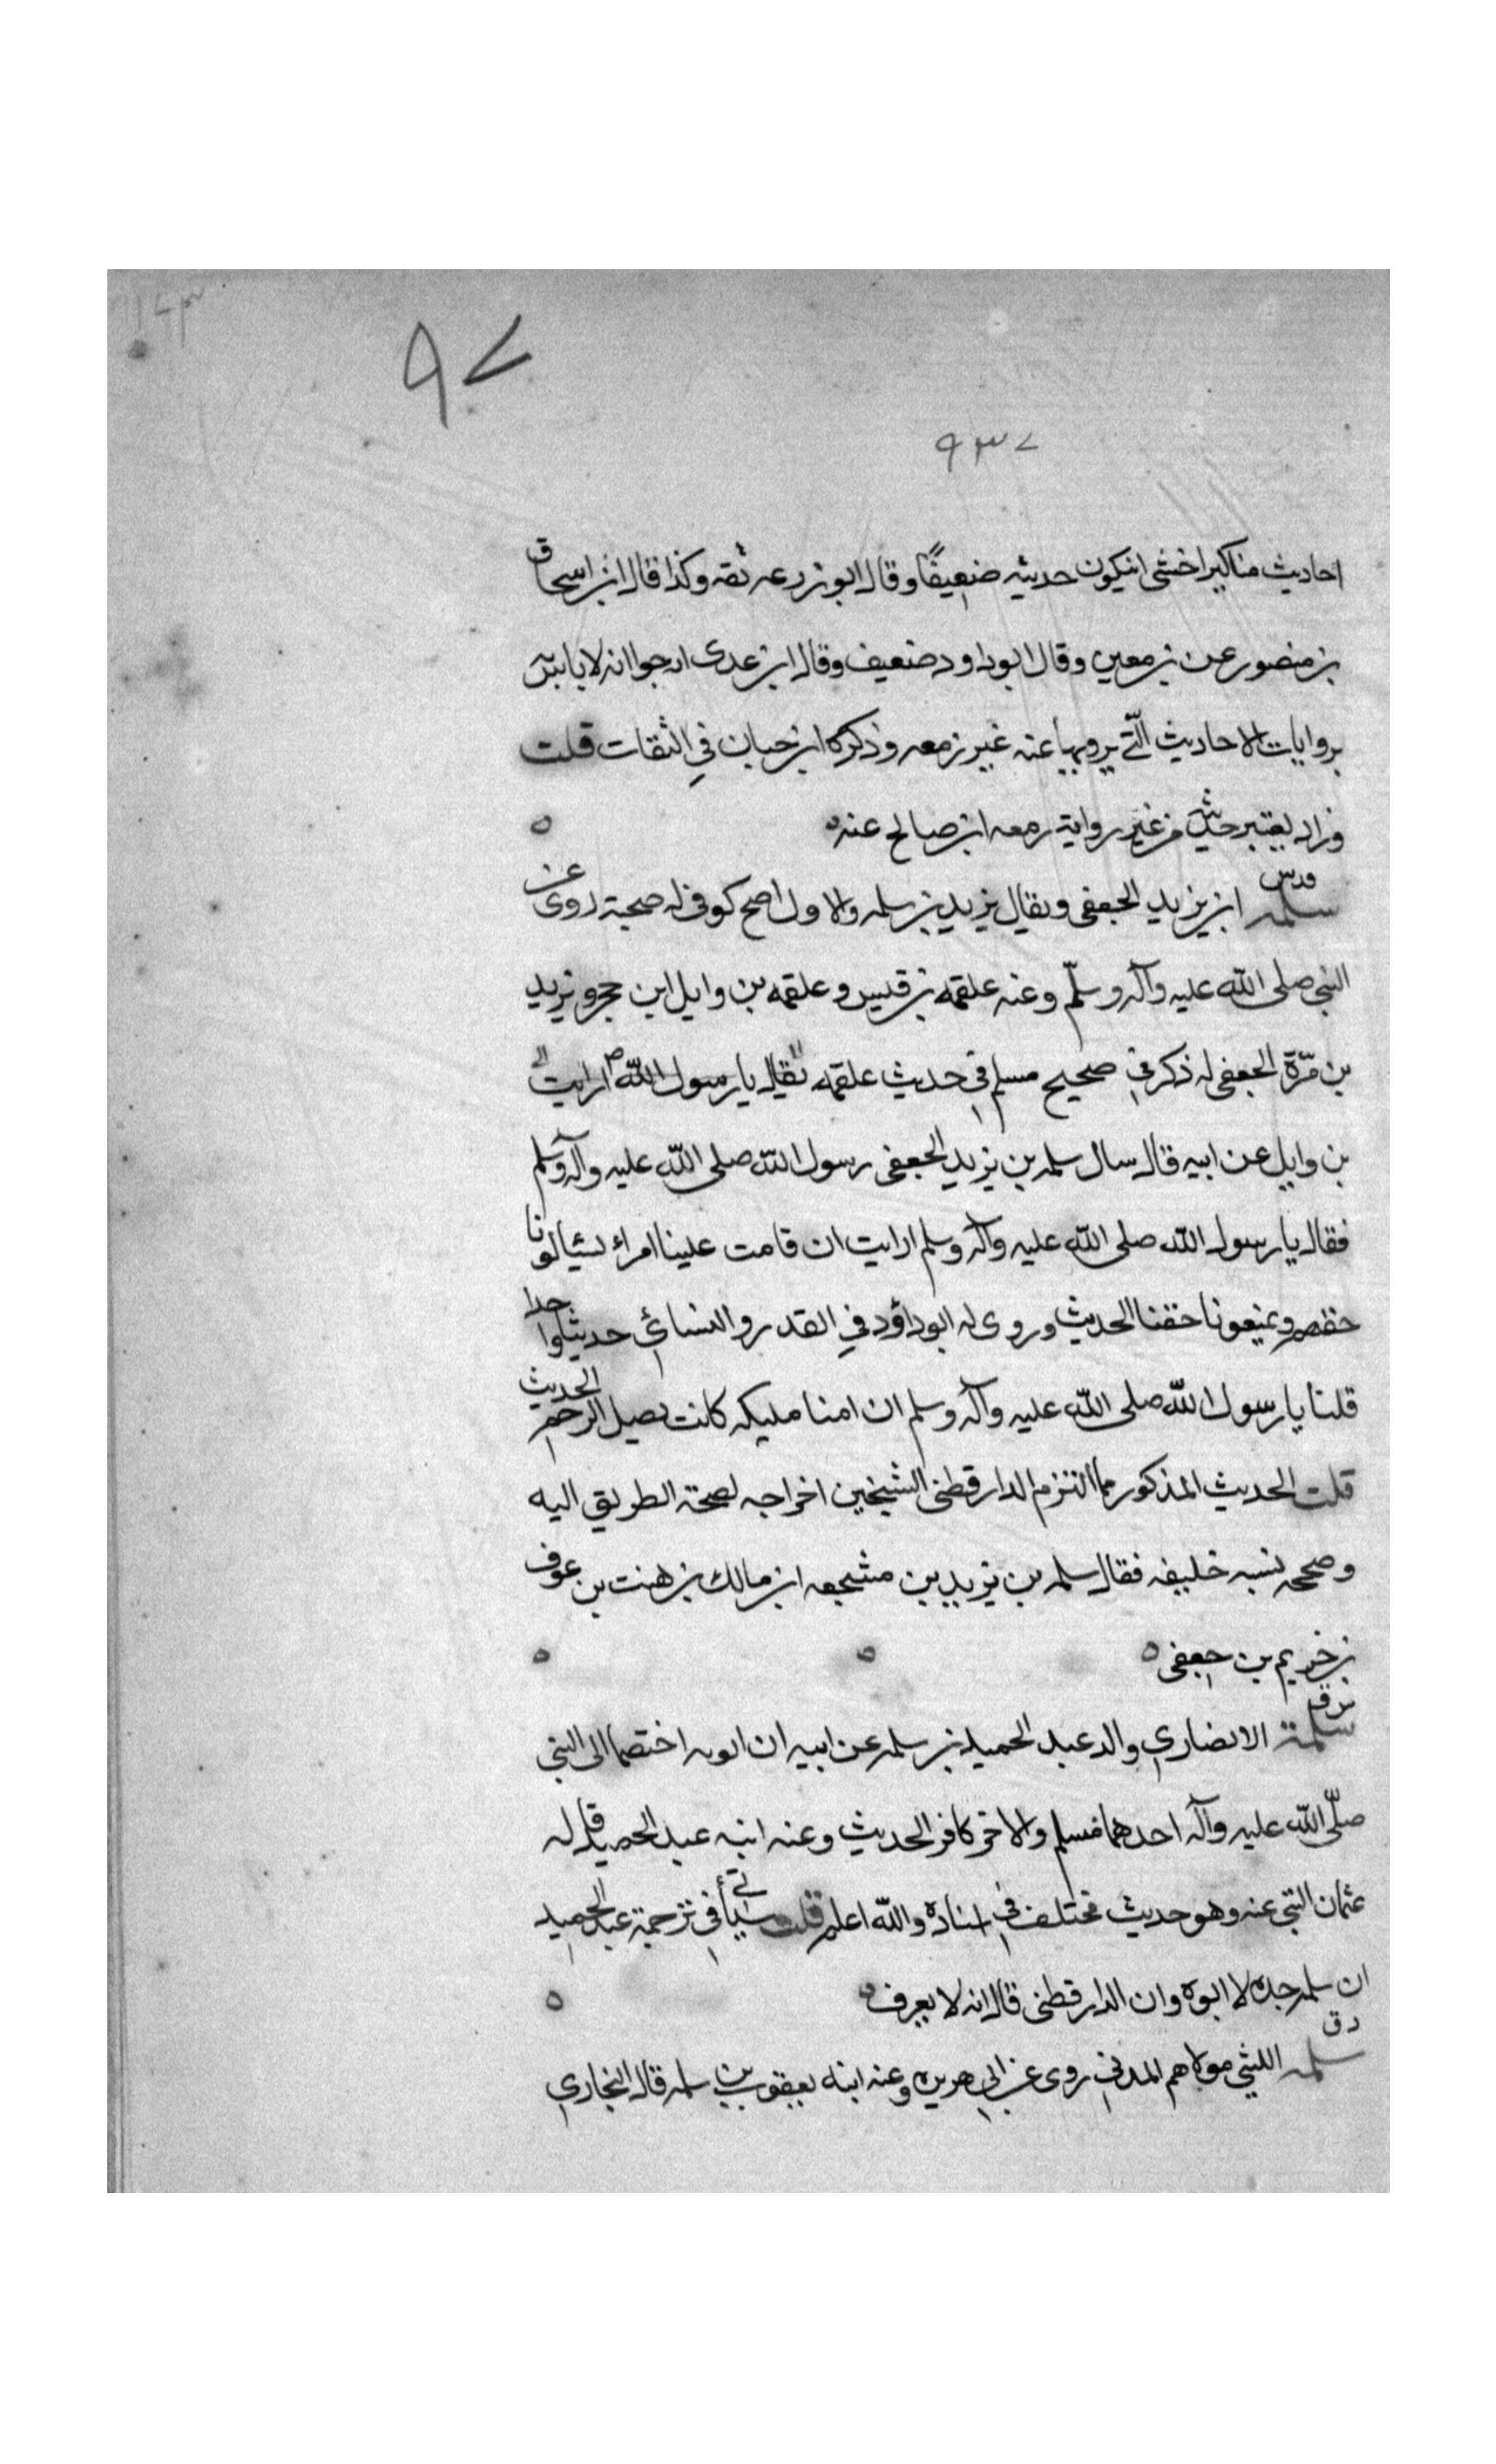 ٩٧
٩٣٧
احاديث مناكير اخشى انيكون حديثه ضعيفًا وقال ابو زرعه ثقه وكذا قال ابن اسحاق
بن منصور عن بن معين وقال ابو داود ضعيف وقال ابن عدى ارجوا انه لا باس به
بروايات الاحاديث الّتي يرويها عنه غير زمعه وذكره ابن حبان في الثقات قلت
وزاد يعتبر حديثه من غير رواية زمعه ابن صالح عنه
مدس
سلمه ابن يزيد الجعفى ويقال يزيد بن سلمه والاول اصح كوفى له صحبة روى عن
النبي صلى الله عليه وآله وسلّم وعنه علقمه بن قيس وعلقمه بن وايل ابن حجر ويزيد
بن مرّة الجعفى له ذكر في صحيح مسلم في حديث علقمه فقال يا رسول الله ارايت
بن وايل عن ابيه قال سال سلمه بن يزيد الجعفى رسول الله صلى الله عليه وآله وسلم
فقال يا رسول الله صلى الله عليه وآله وسلم ارايت ان قامت علينا امراء يسئالونا
حقهم ويمنعونا حقنا الحديث وروى له ابو داؤد في القدر والنسائي حديثا واحدا
قلنا يا رسول الله صلى الله عليه وآله وسلم ان امنا مليكه كانت تصيل الرحم الحديث
قلت الحديث المذكور مما التزم الدارقطنى الشيخين اخراجه لصحة الطريق اليه
وصحح نسبه خليفه فقال سلمه بن يزيد بن مشجعه ابن مالك بن هنت بن عوف
بن خريم بن جعفى
س ق
سلمة الانصاري والد عبد الحميد بن سلمه عن ابيه ان ابويه اختصما الى النبي
صلّى الله عليه وآله احدهما مسلم والاخر كافر الحديث وعنه ابنه عبد الحميد قاله
عثمان البتي عنه وهو حديث مختلف في اسناده والله اعلم قلت سيأتي في ترجمة عبد الحميد
ان سلمه جده لا ابوه وان الدارقطنى قال انه لا يعرف
د ق
سلمه الليثي مولاهم المدني روى عن ابي هريره وعنه ابنه يعقوب بن سلمه قال البخاري